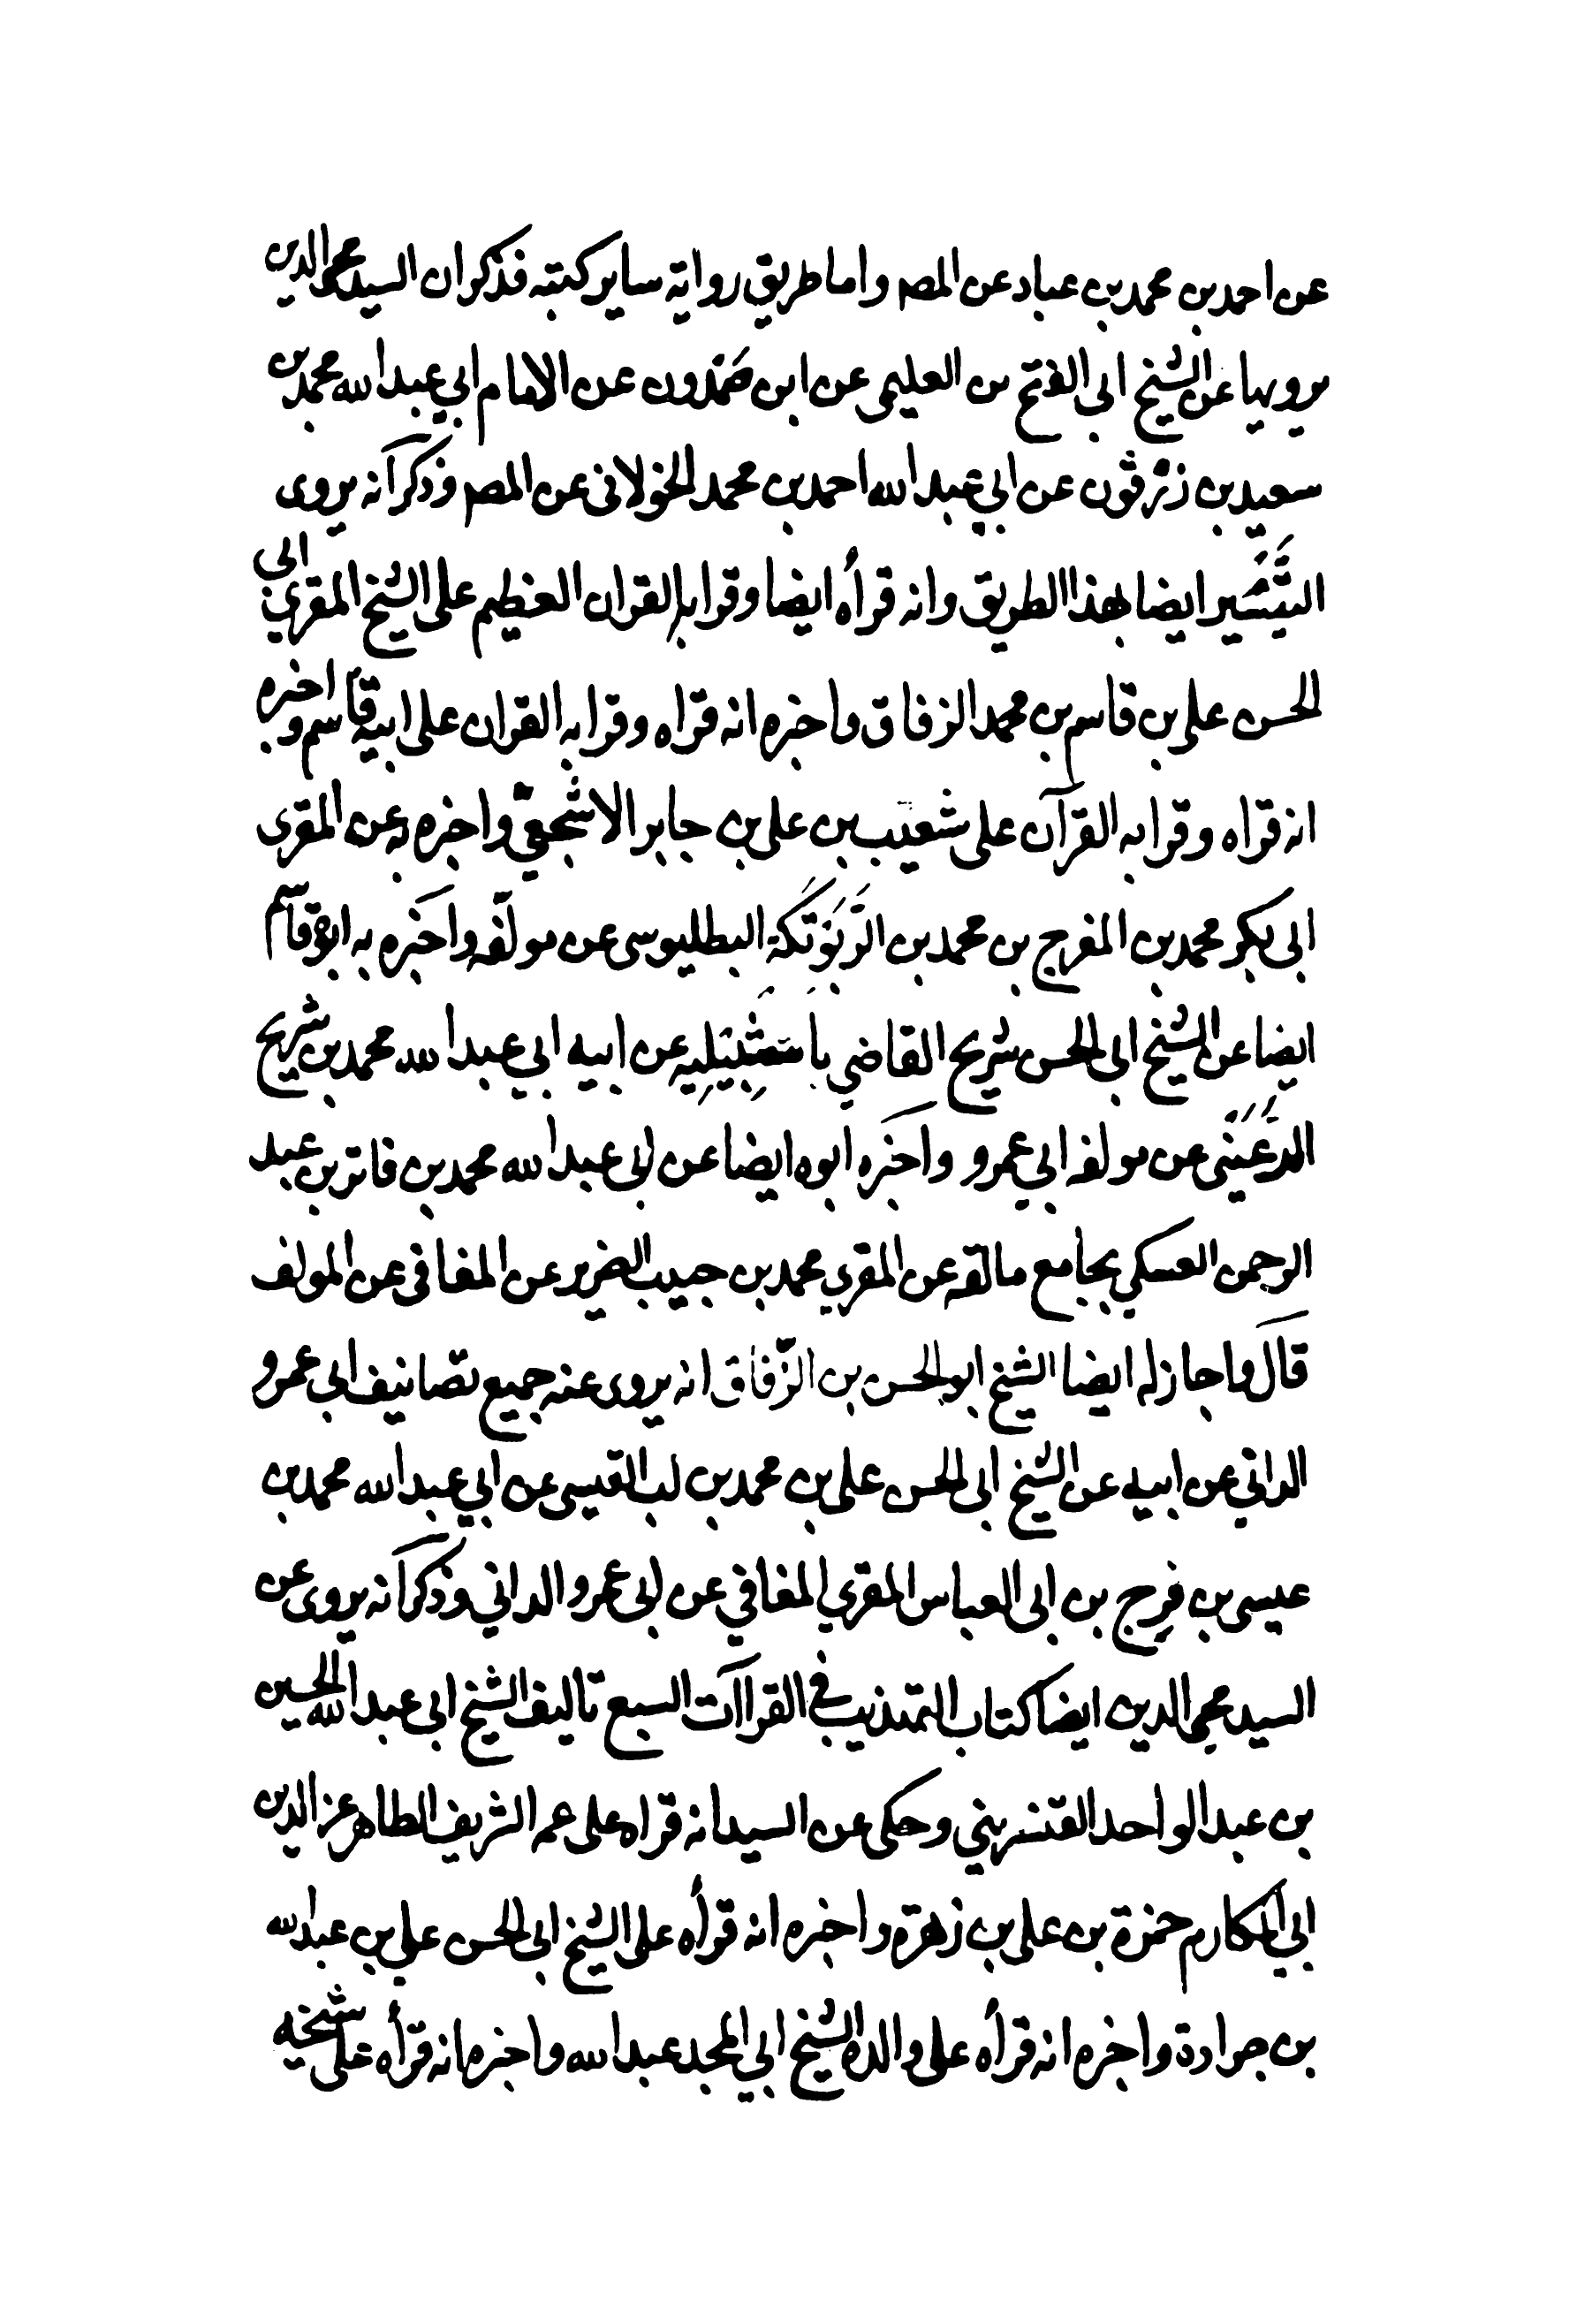 عن احمد بن محمد بن عباد عن المصه واما طريق رواية ساير كتبه فذكر ان السيد محيي الدين
يرويها عن الشيخ ابي الفتح بن العليمي عن ابن صمدون عن الامام ابي عبد الله محمد بن
سعيد بن زرقون عن ابي عبد الله احمد بن محمد الخولاني عن المصه وذكر انه يروى
التيسير ايضا بهذا الطريق وانه قرأه ايضا وقرا به القران العظيم على الشيخ المقري ابي
الحسن علي بن قاسم بن محمد الزقاق واخبره انه قراه وقرا به القران على ابيه قاسم واخبره
انه قراه وقرا به القرآن على شعيب بن علي بن جابر الاشجعي واخبره به عن المقرى
ابي بكر محمد بن المفرج بن محمد بن الربوتكة البطليوسى عن مولفه واخبره به ابوه قاسم
ايضا عن الشيخ ابي الحسن شريح القاضي باشبيليه عن ابيه ابي عبد الله محمد بن شريح
الرعيني عن مولفه ابي عمرو واخبره ابوه ايضا عن ابي عبد الله محمد بن فاتر بن عبد
الرحمن العسكري بجامع مالقه عن المقري محمد بن حبيب الضرير عن المغافي عن المولف
قال واجاز له ايضا الشيخ ابو الحسن بن الزقاق انه يروى عنه جميع تصانيف ابي عمرو
الداني عن ابيه عن الشيخ ابي الحسن علي بن محمد بن لب القيسي عن ابي عبد الله محمد بن
عيسى بن فرج بن ابي العباس المقري المغافي عن ابي عمرو الداني وذكر انه يروى عن
السيد محيي الدين ايضا كتاب التهذيب في القراآت السبع تاليف الشيخ ابي عبد الله الحسين
بن عبد الواحد القنسريني وحكى عن السيد انه قراه على عمه الشريف الطاهر عز الدين
ابي المكارم حمزة بن علي بن زهرة واخبره انه قرأه على الشيخ ابي الحسن علي بن عبد الله
بن جرادة واخبره انه قرأه على والده الشيخ ابي المجد عبد الله واخبره انه قرأه على شيخه